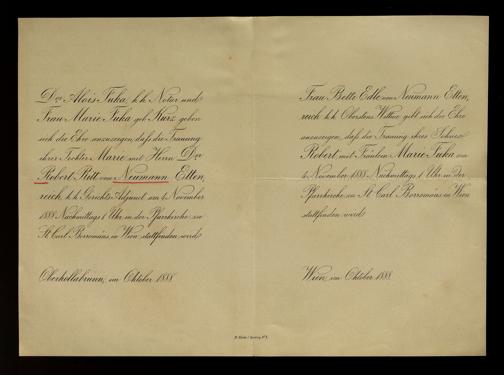 Dor Alois Fuka, k.k. Notar und
Frau Marie Fuka geb. Kurz geben
sich die Ehre anzuzeigen, daß die Trauung
ihrer Tochter Marie mit Herrn Dor
Robert Ritt. von Neumann Etten,
reich, k.k. Gerichts Adjunct am 6. November
1888 Nachmittags 1 Uhr in der Pfarrkirche zu
St. Carl Borromäus in Wien stattfinden wird.
Oberhollabrunn, im October 1888.
Frau Bette Edle von Neumann Etten,
reich k.k. Oberstens Wittwe gibt sich die Ehre
anzuzeigen, daß die Trauung ihres Sohnes
Robert mit Fräulein Marie Fuka am
6. November 1888 Nachmittags 1 Uhr in der
Pfarrkirche zu St. Carl Borromäus in Wien
stattfinden wird.
Wien, im October 1888.